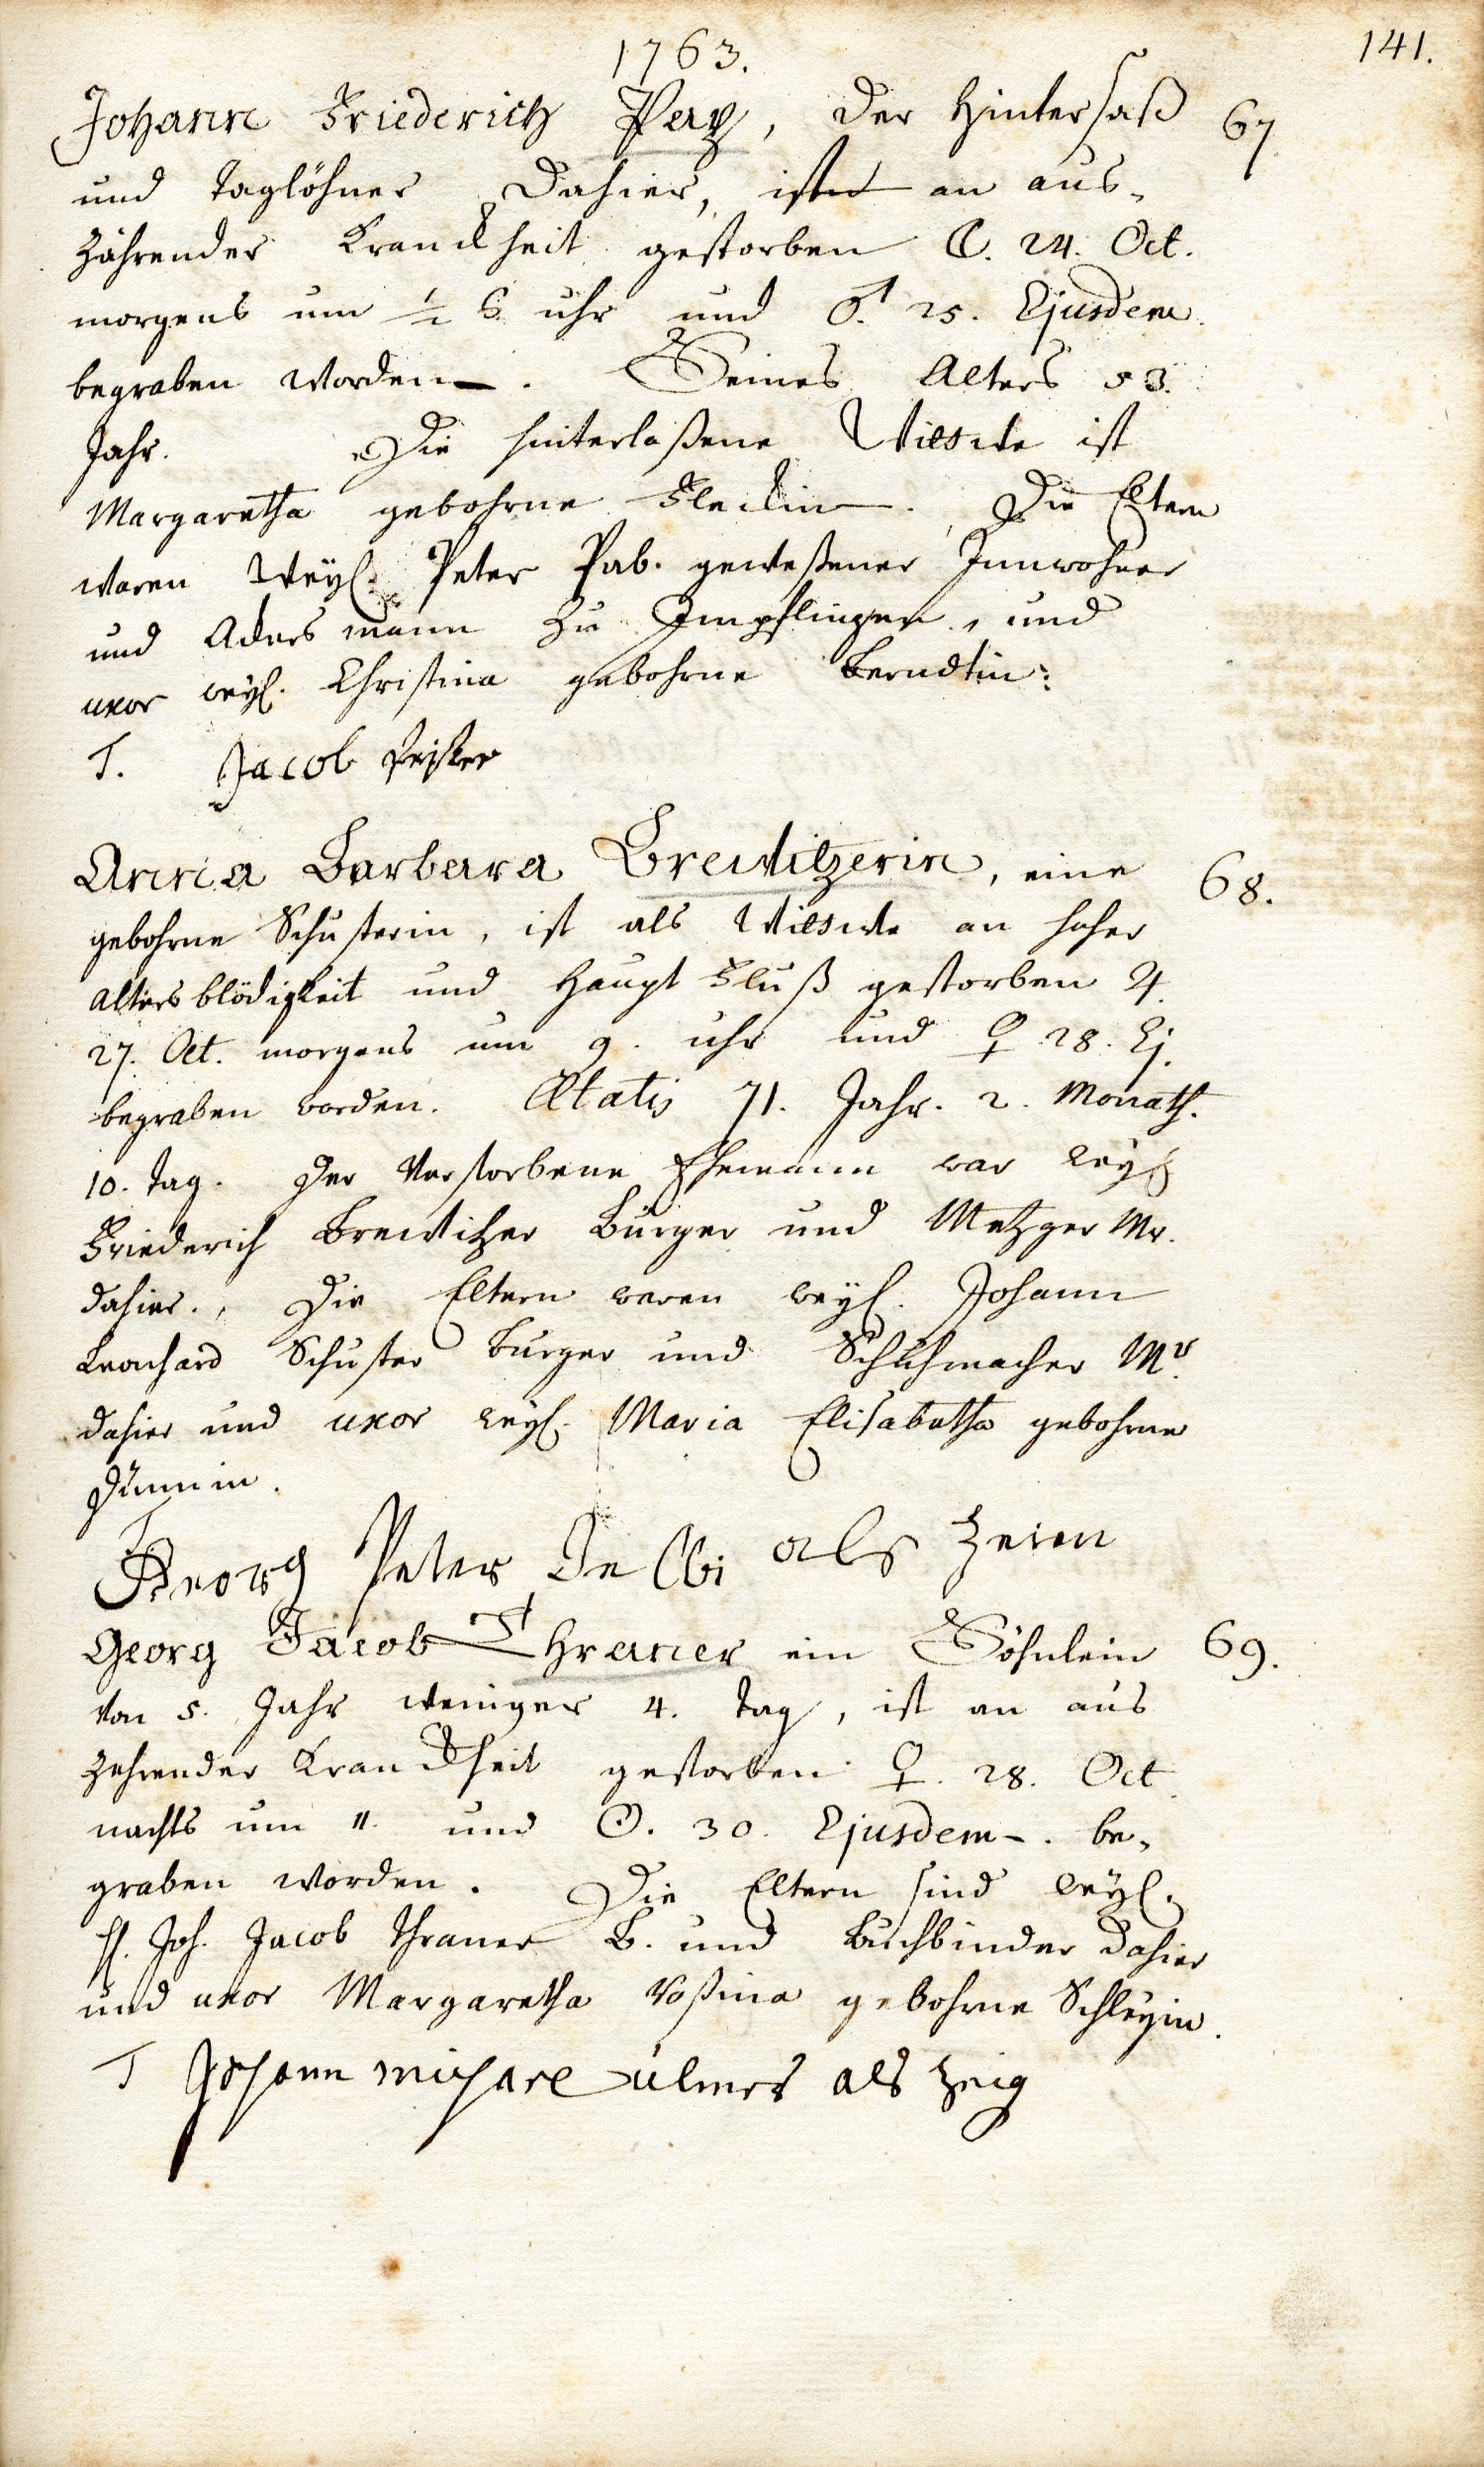 141.
1763.
Johann Friederich Paz, der Hintersaß 67
und Taglöhner dahier, ist an aus-
zährender Kranckheit gestorben ☾. 24. Oct.
morgens um ½ 6 uhr und ♂. 25. Ejusdem
begraben worden. Seines Alters 53.
Jahr. Die hinterlaßene Wittwe ist
Margaretha gebohrne Fleckin. Die Eltern
waren Weyl. Peter Pab. geweßener Innwohner
und Ackersmann zu Impflingen, und
uxor weyl. Christina gebohrne Berndtin:
T. Jacob
Anna Barbara Brewitzerin, eine 68.
gebohrne Schusterin, ist als Wittwe an hoher
Altersblödigkeit und Haupt Fluß gestorben ♃.
27. Oct. morgens um 9. uhr und ♀ 28. Ej.
begraben worden. Ætatis 71. Jahr. 2. Monath.
10. Tag. Der Verstorbene Ehemann war weyl
Friederich Brewitzer Burger und Metzger Mr.
dahier., Die Eltern waren weyl. Johann
Leonhard Schuster Burger und Schuhmacher Mr
dahier und uxor weyl. Maria Elisabetha gebohrne
Dümmin.
T Georg Peter als
Georg Jacob Thraner ein Söhnlein 69.
von 5. Jahr weniger 4. Tag, ist an aus
zehrender Kranckheit gestorben ♀. 28. Oct
nachts um 11. und ☉. 30. Ejusdem. be-
graben worden. Die Eltern sind weyl.
H. Joh. Jacob Thraner B. und Buchbinder dahier
und uxor Margaretha Roßina gebohrne Schleyin.
T Johann Michael Ulmer als Zeig